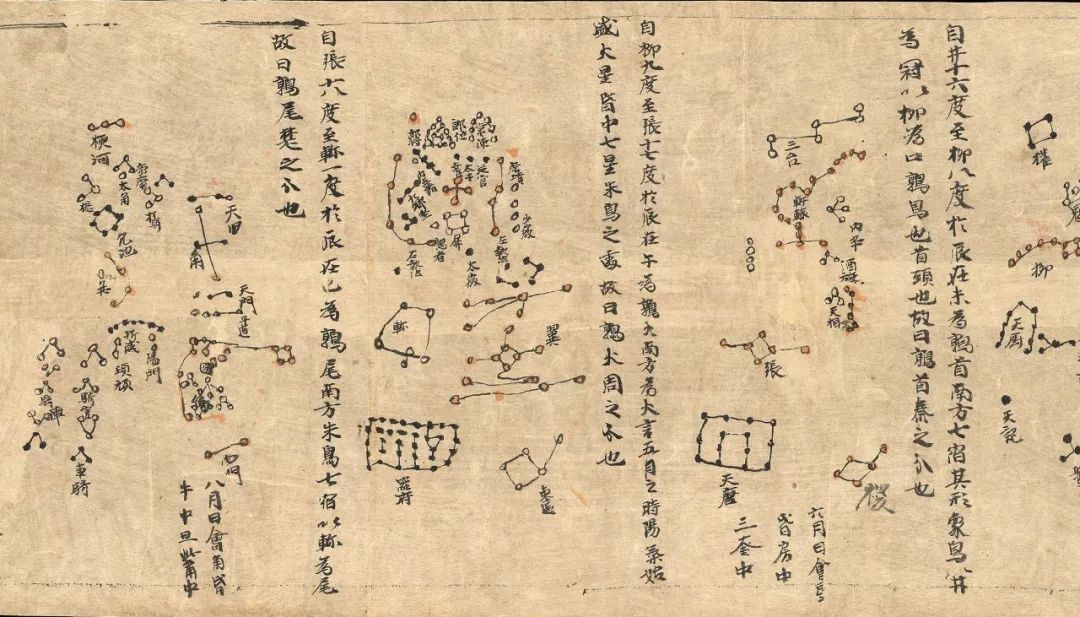 爟
柳
天廟
天記
自井十六度至柳八度於辰在未為鶉首南方七宿其形象鳥以井
為冠以柳為口鶉鳥也首頭也故曰鶉首秦之分也
三台
軒轅
內平
酒旗
天相
張
稷
天廟
六月日會
昏房中
旦奎中
自柳九度至張十七度於辰在午為鶉火南方為火言五月之時陽氣始
盛火星昏中七星朱鳥之處故曰鶉火周之分也
郎位
常陳
郎將
太子
從官
屏
謁者
少微
太微
左執法
右執法
翼
軫
東區
器府
自張十八度至軫一度於辰在巳為鶉尾南方朱鳥七宿以軫為尾
故曰鶉尾楚之分也
天田
角
天門
平道
南門
八月日會角昏
牛中旦觜中
梗河
大角
亢池
亢
陽門
頓頑
折威
騎官
車騎